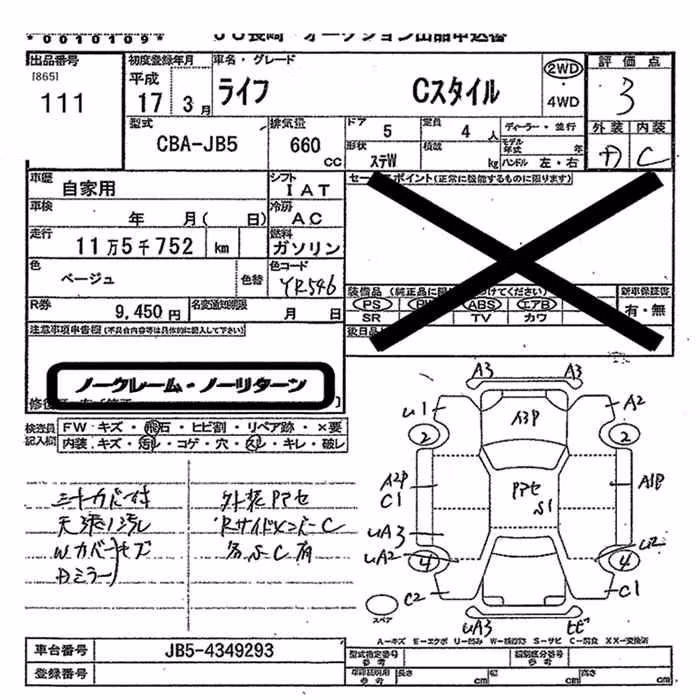 *0010109*
JU長崎・オークション出品申込書
出品番号
[865]
111
初度登録年月
平成
17 3月
車名・グレード
ライフ Cスタイル
2WD
4WD
評価点
3
外装 内装
D C
型式
CBA-JB5
排気量
660
CC
ドア
5
定員
4 人
ディーラー・並行
モデル年式 年
形状
ステW
積載
kg
ハンドル 左・右
車歴
自家用
シフト
IAT
車検
年 月( 日)
冷房
AC
走行
11万5千752 km
燃料
ガソリン
色
ベージュ
色替
色コード
YR546
R券
9,450円
名変通知期限
月 日
セールスポイント(正常に機能するものに限ります)
新車保証書
有・無
PS PW ABS エアB
SR TV カワ
注意事項申告欄(不具合内容等は具体的に記入して下さい)
ノークレーム・ノーリターン
検査員記入欄
FW キズ・飛石・ヒビ割・リペア跡・×要
内装 キズ・汚レ・コゲ・穴・スレ・キレ・破レ
シートカバー付
天張り汚レ
Wカバーキズ
Dミラー
外装Pアセ
RサイドメンバーC
各所C有
A3 A3
U1 A3P A2
2 2
A2P
C1
Pアセ
S1
A1P
UA3
UA2 U2
4 4
C2 C1
スペア
UA3 ヒビ
A-キズ E-エクボ U-凹み W-補修跡 S-サビ C-腐食 XX-交換済
車台番号
JB5-4349293
登録番号
型式指定番号
参考
類別区分番号
参考
車両証明用
参考
長さ cm
幅 cm
高さ cm